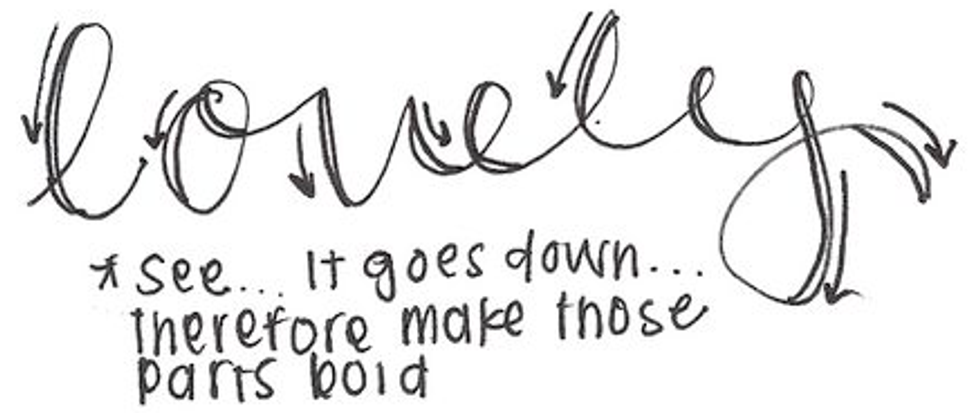 lovely
*see... It goes down...
therefore make those
parts bold